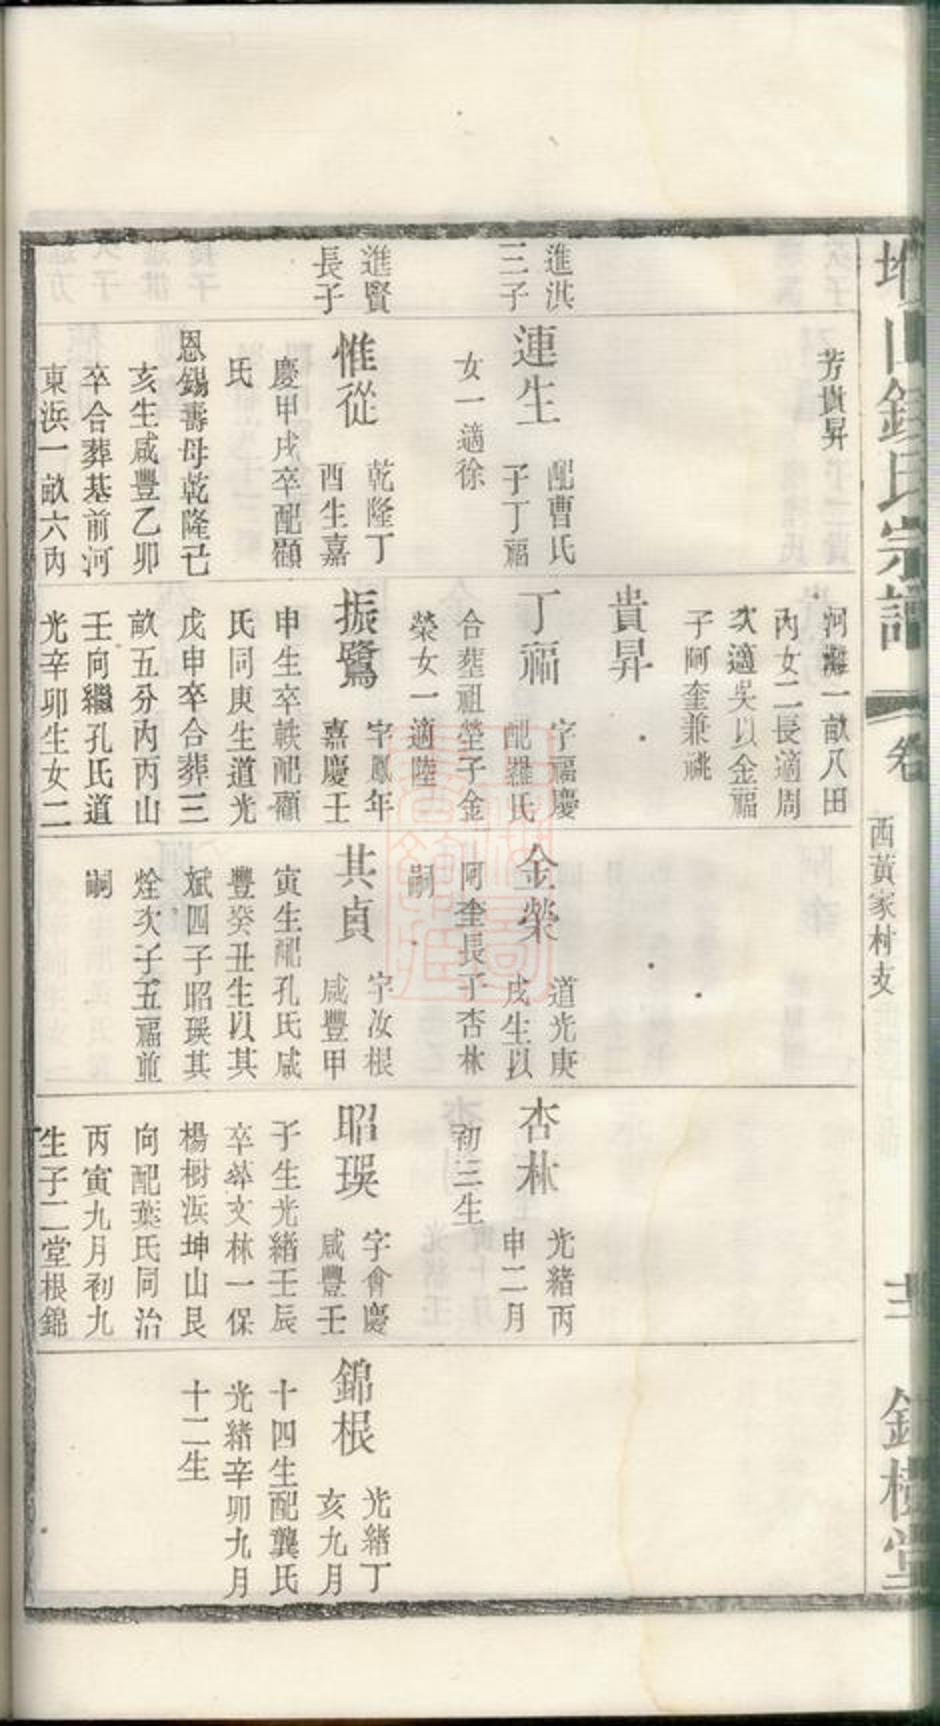 錢氏宗譜
卷
西黃家村支
芳貴昇
河灘一畝八田
內女二長適周
次適吳以金福
子阿奎兼祧
貴昇
進洪
三子
連生
配曹氏
子丁福
女一適徐
丁福
字福慶
配羅氏
合塟祖塋子金
榮女一適陸
金榮
道光庚
戌生以
阿奎長子杏林
嗣
杏林
光緒丙
申二月
初三生
進賢
長子
惟從
乾隆丁
酉生嘉
慶甲戌卒配顧
氏
恩錫壽母乾隆己
亥生咸豐乙卯
卒合葬基前河
東浜一畝六內
振鷺
字鳳年
嘉慶壬
申生卒軼配顧
氏同庚生道光
戊申卒合葬三
畝五分內丙山
壬向繼孔氏道
光辛卯生女二
其貞
字汝根
咸豐甲
寅生配孔氏咸
豐癸丑生以其
斌四子昭瑛其
烇次子五福並
嗣
昭瑛
字會慶
咸豐壬
子生光緒壬辰
卒葬文林一保
楊樹浜坤山艮
向配葉氏同治
丙寅九月初九
生子二堂根錦
錦根
光緒丁
亥九月
十四生配龔氏
光緒辛卯九月
十二生